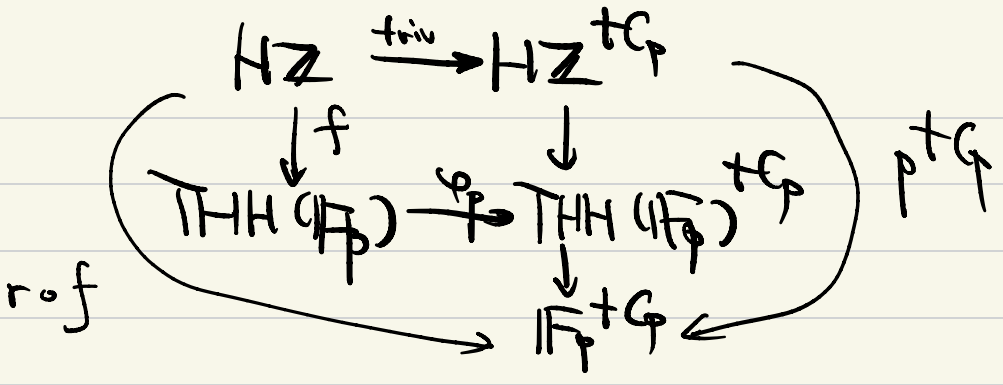 HZ triv HZ^{tC_p}
f
p^{tC_p}
THH(𝔽_p) φ_p THH(𝔽_p)^{tC_p}
r∘f
𝔽_p^{tC_p}